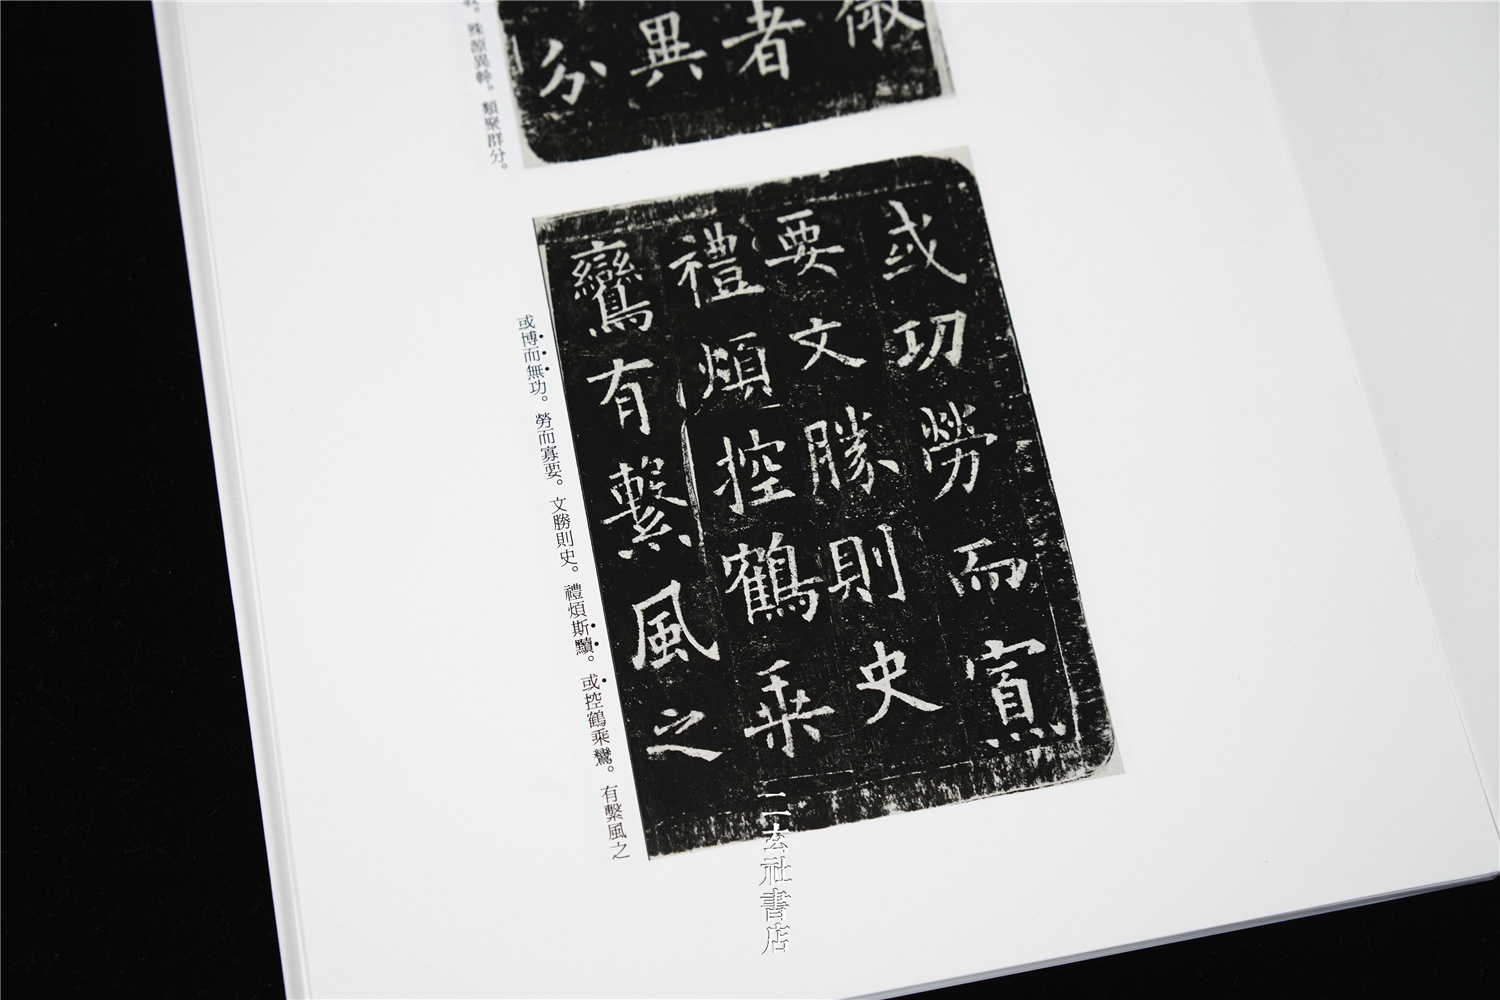 倣
者
異
分
殊源異幹。類聚群分。
或功勞而寡
要文勝則史
禮煩控鶴乘
鸞有繫風之
或博而無功。勞而寡要。文勝則史。禮煩斯黷。或控鶴乘鸞。有繫風之
二玄社書店